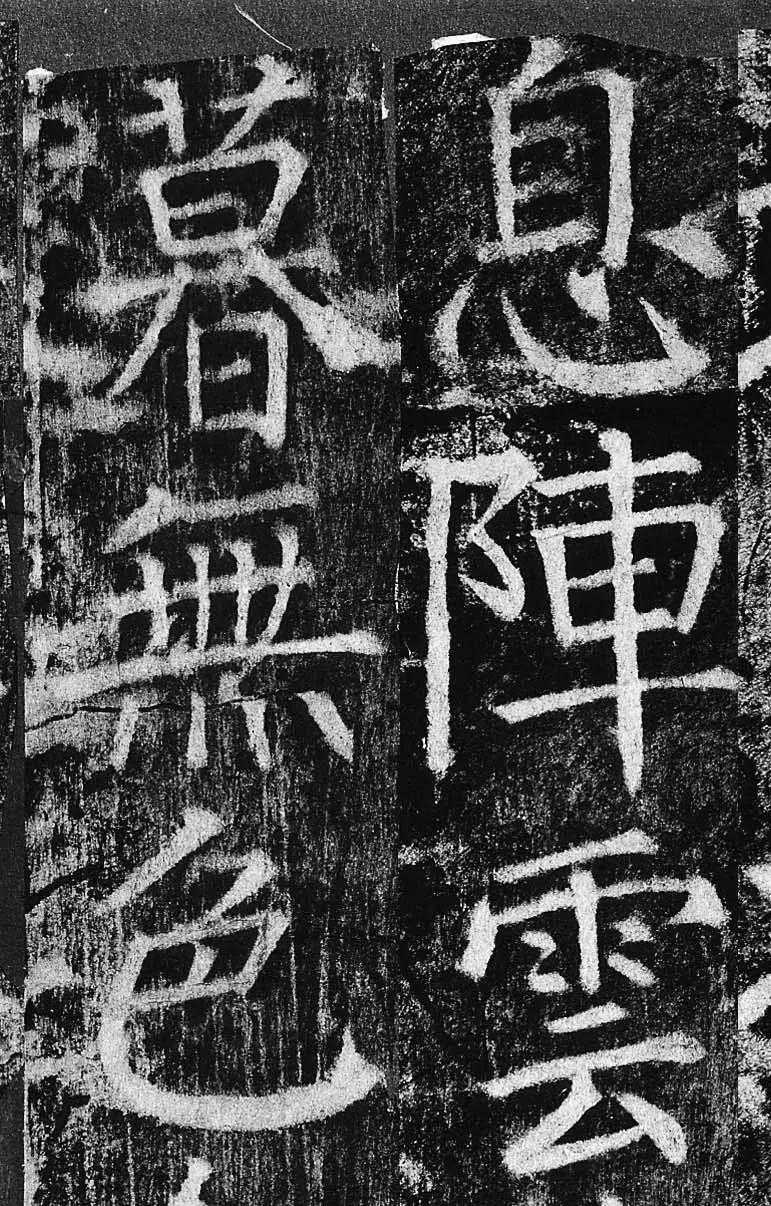 息陣雲
暮無色